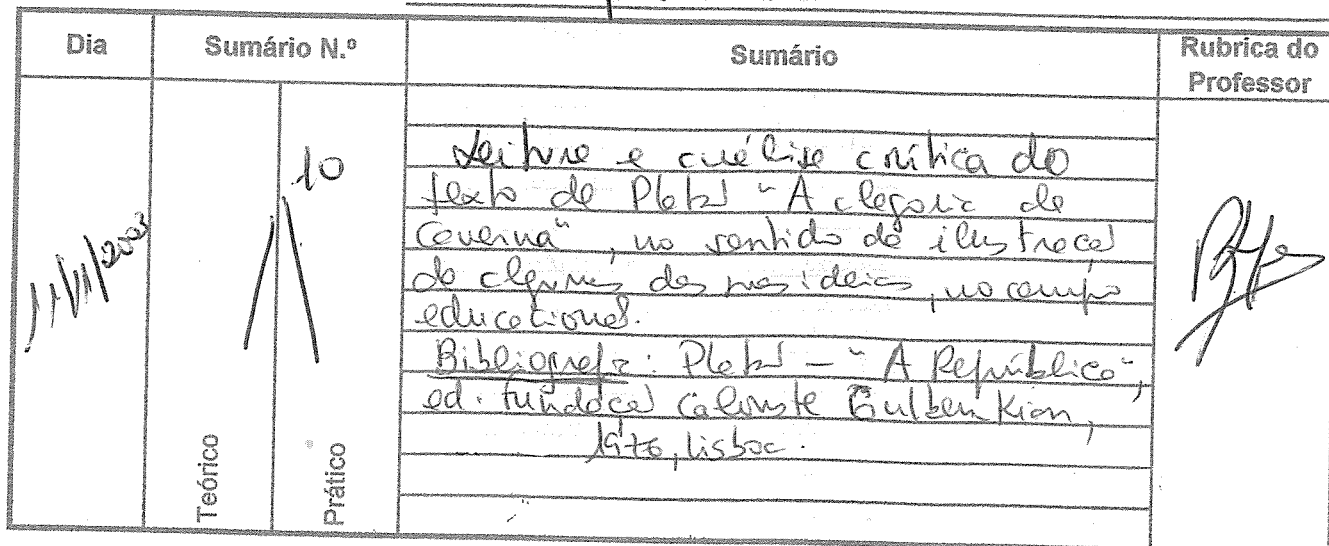 Dia
Sumário N.º
Sumário
Rubrica do
Professor
11/11/2003
10
Leitura e análise crítica do
texto de Platão "A alegoria da
Caverna", no sentido da ilustração
de algumas das suas ideias, no campo
educacional.
Bibliografia: Platão – "A República",
ed. Fundação Calouste Gulbenkian,
Lisboa.
Teórico
Prático